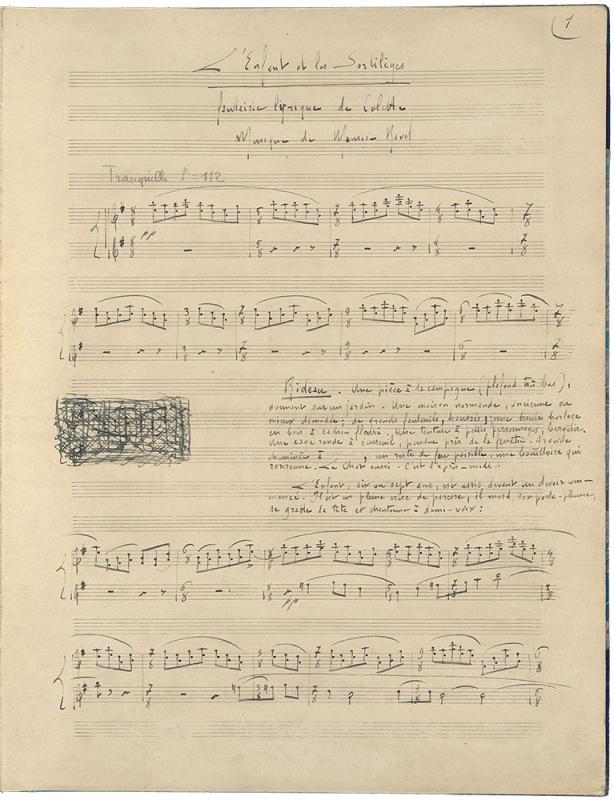 1
L'Enfant et les Sortilèges
fantaisie lyrique de Colette
Musique de Maurice Ravel
Tranquillo ♪=112
8 8 5 8 7 8 4 8 7 8
pp
3 8 7 8 9 8 6 8 7 8
Rideau. Une pièce à la campagne (plafond très bas),
donnant sur un jardin. Une maison normande, ancienne ou
mieux démodée; de grands fauteuils, houssés; une haute horloge
en bois à cadran fleuri. Une tenture à petits personnages, bergerie.
Une cage ronde à écureuil, pendue près de la fenêtre. Grande
cheminée à , un reste de feu paisible, une bouilloire qui
ronronne. Le Chat aussi. C'est l'après-midi.
L'Enfant, six ou sept ans, est assis devant un devoir com-
mencé. Il est en pleine crise de paresse, il mord son porte-plume,
se gratte la tête et chantonne à demi-voix:
pp